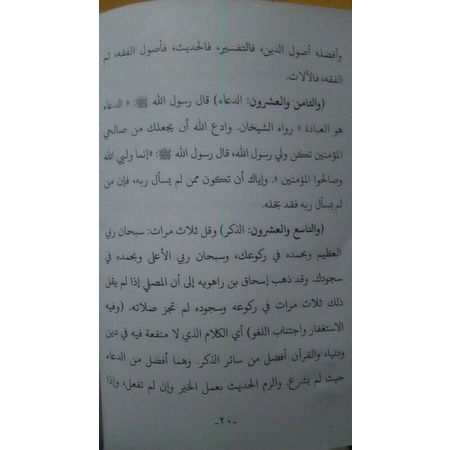 وأفضله أصول الدين، فالتفسير، فالحديث، فأصول الفقه، ثم
الفقه، فالآلات.
(والثامن والعشرون: الدعاء) قال رسول الله ﷺ: « الدعاء
هو العبادة » رواه الشيخان. وادع الله أن يجعلك من صالحي
المؤمنين تكن ولي رسول الله، قال رسول الله ﷺ: «إنما وليي الله
وصالحوا المؤمنين ». وإياك أن تكون ممن لم يسأل ربه، فإن من
لم يسأل ربه فقد بخله.
(والتاسع والعشرون: الذكر) وقل ثلاث مرات: سبحان ربي
العظيم وبحمده في ركوعك، وسبحان ربي الأعلى وبحمده في
سجودك. وقد ذهب إسحاق بن راهويه إلى أن المصلي إذا لم يقل
ذلك ثلاث مرات في ركوعه وسجوده لم تجز صلاته. (وفيه
الاستغفار واجتناب اللغو) أي الكلام الذي لا منفعة فيه في دين
ودنيا، والقرآن أفضل من سائر الذكر. وهما أفضل من الدعاء
حيث لم يشرع. والزم الحديث بعمل الخير وإن لم تفعل، وإذا
-٢٠-